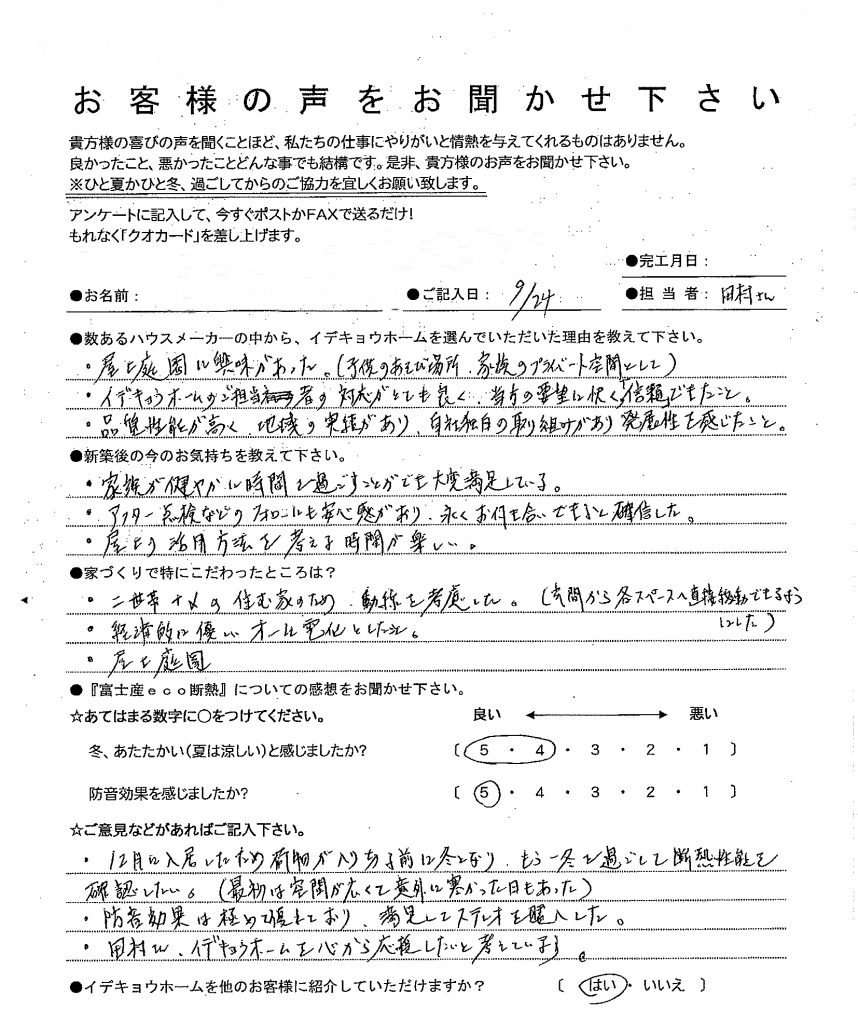 お客様の声をお聞かせ下さい
貴方様の喜びの声を聞くことほど、私たちの仕事にやりがいと情熱を与えてくれるものはありません。
良かったこと、悪かったことどんな事でも結構です。是非、貴方様のお声をお聞かせ下さい。
※ひと夏かひと冬、過ごしてからのご協力を宜しくお願い致します。
アンケートに記入して、今すぐポストかFAXで送るだけ!
もれなく「クオカード」を差し上げます。
●完工月日:
●お名前: ●ご記入日: 9/24 ●担当者: 田村さん
●数あるハウスメーカーの中から、イデキョウホームを選んでいただいた理由を教えて下さい。
・屋上庭園に興味があった。(子供のあそび場所、家族のプライベート空間として)
・イデキョウホームのご担当者の対応がとても良く、当方の要望に快く「信頼」できたこと。
・品質性能が高く、地域の実績があり、自社独自の取り組みがあり発展性を感じたこと。
●新築後の今のお気持ちを教えて下さい。
・家族が健やかに時間を過ごすことができ大変満足している。
・アフター点検などのフォローにも安心感があり、永くお付き合いできると確信した。
・屋上の活用方法を考える時間が楽しい。
●家づくりで特にこだわったところは?
・二世帯+〆の住む家のため、動線を考慮した。(玄関から各スペースへ直接移動できるよう
にした)
・経済的に優しいオール電化としたこと。
・屋上庭園
●『富士産eco断熱』についての感想をお聞かせ下さい。
☆あてはまる数字に○をつけてください。 良い ←→ 悪い
冬、あたたかい(夏は涼しい)と感じましたか? 〔 5 ・ 4 ・ 3 ・ 2 ・ 1 〕
防音効果を感じましたか? 〔 5 ・ 4 ・ 3 ・ 2 ・ 1 〕
☆ご意見などがあればご記入下さい。
・12月に入居したため荷物が入りきる前に冬となり、もう一冬を過ごして断熱性能を
確認したい。(最初は空間が広くて意外に寒かった日もあった)
・防音効果は極めて優れており、満足してステレオを購入した。
・田村さん、イデキョウホームを心から応援したいと考えている。
●イデキョウホームを他のお客様に紹介していただけますか? 〔 はい ・ いいえ 〕